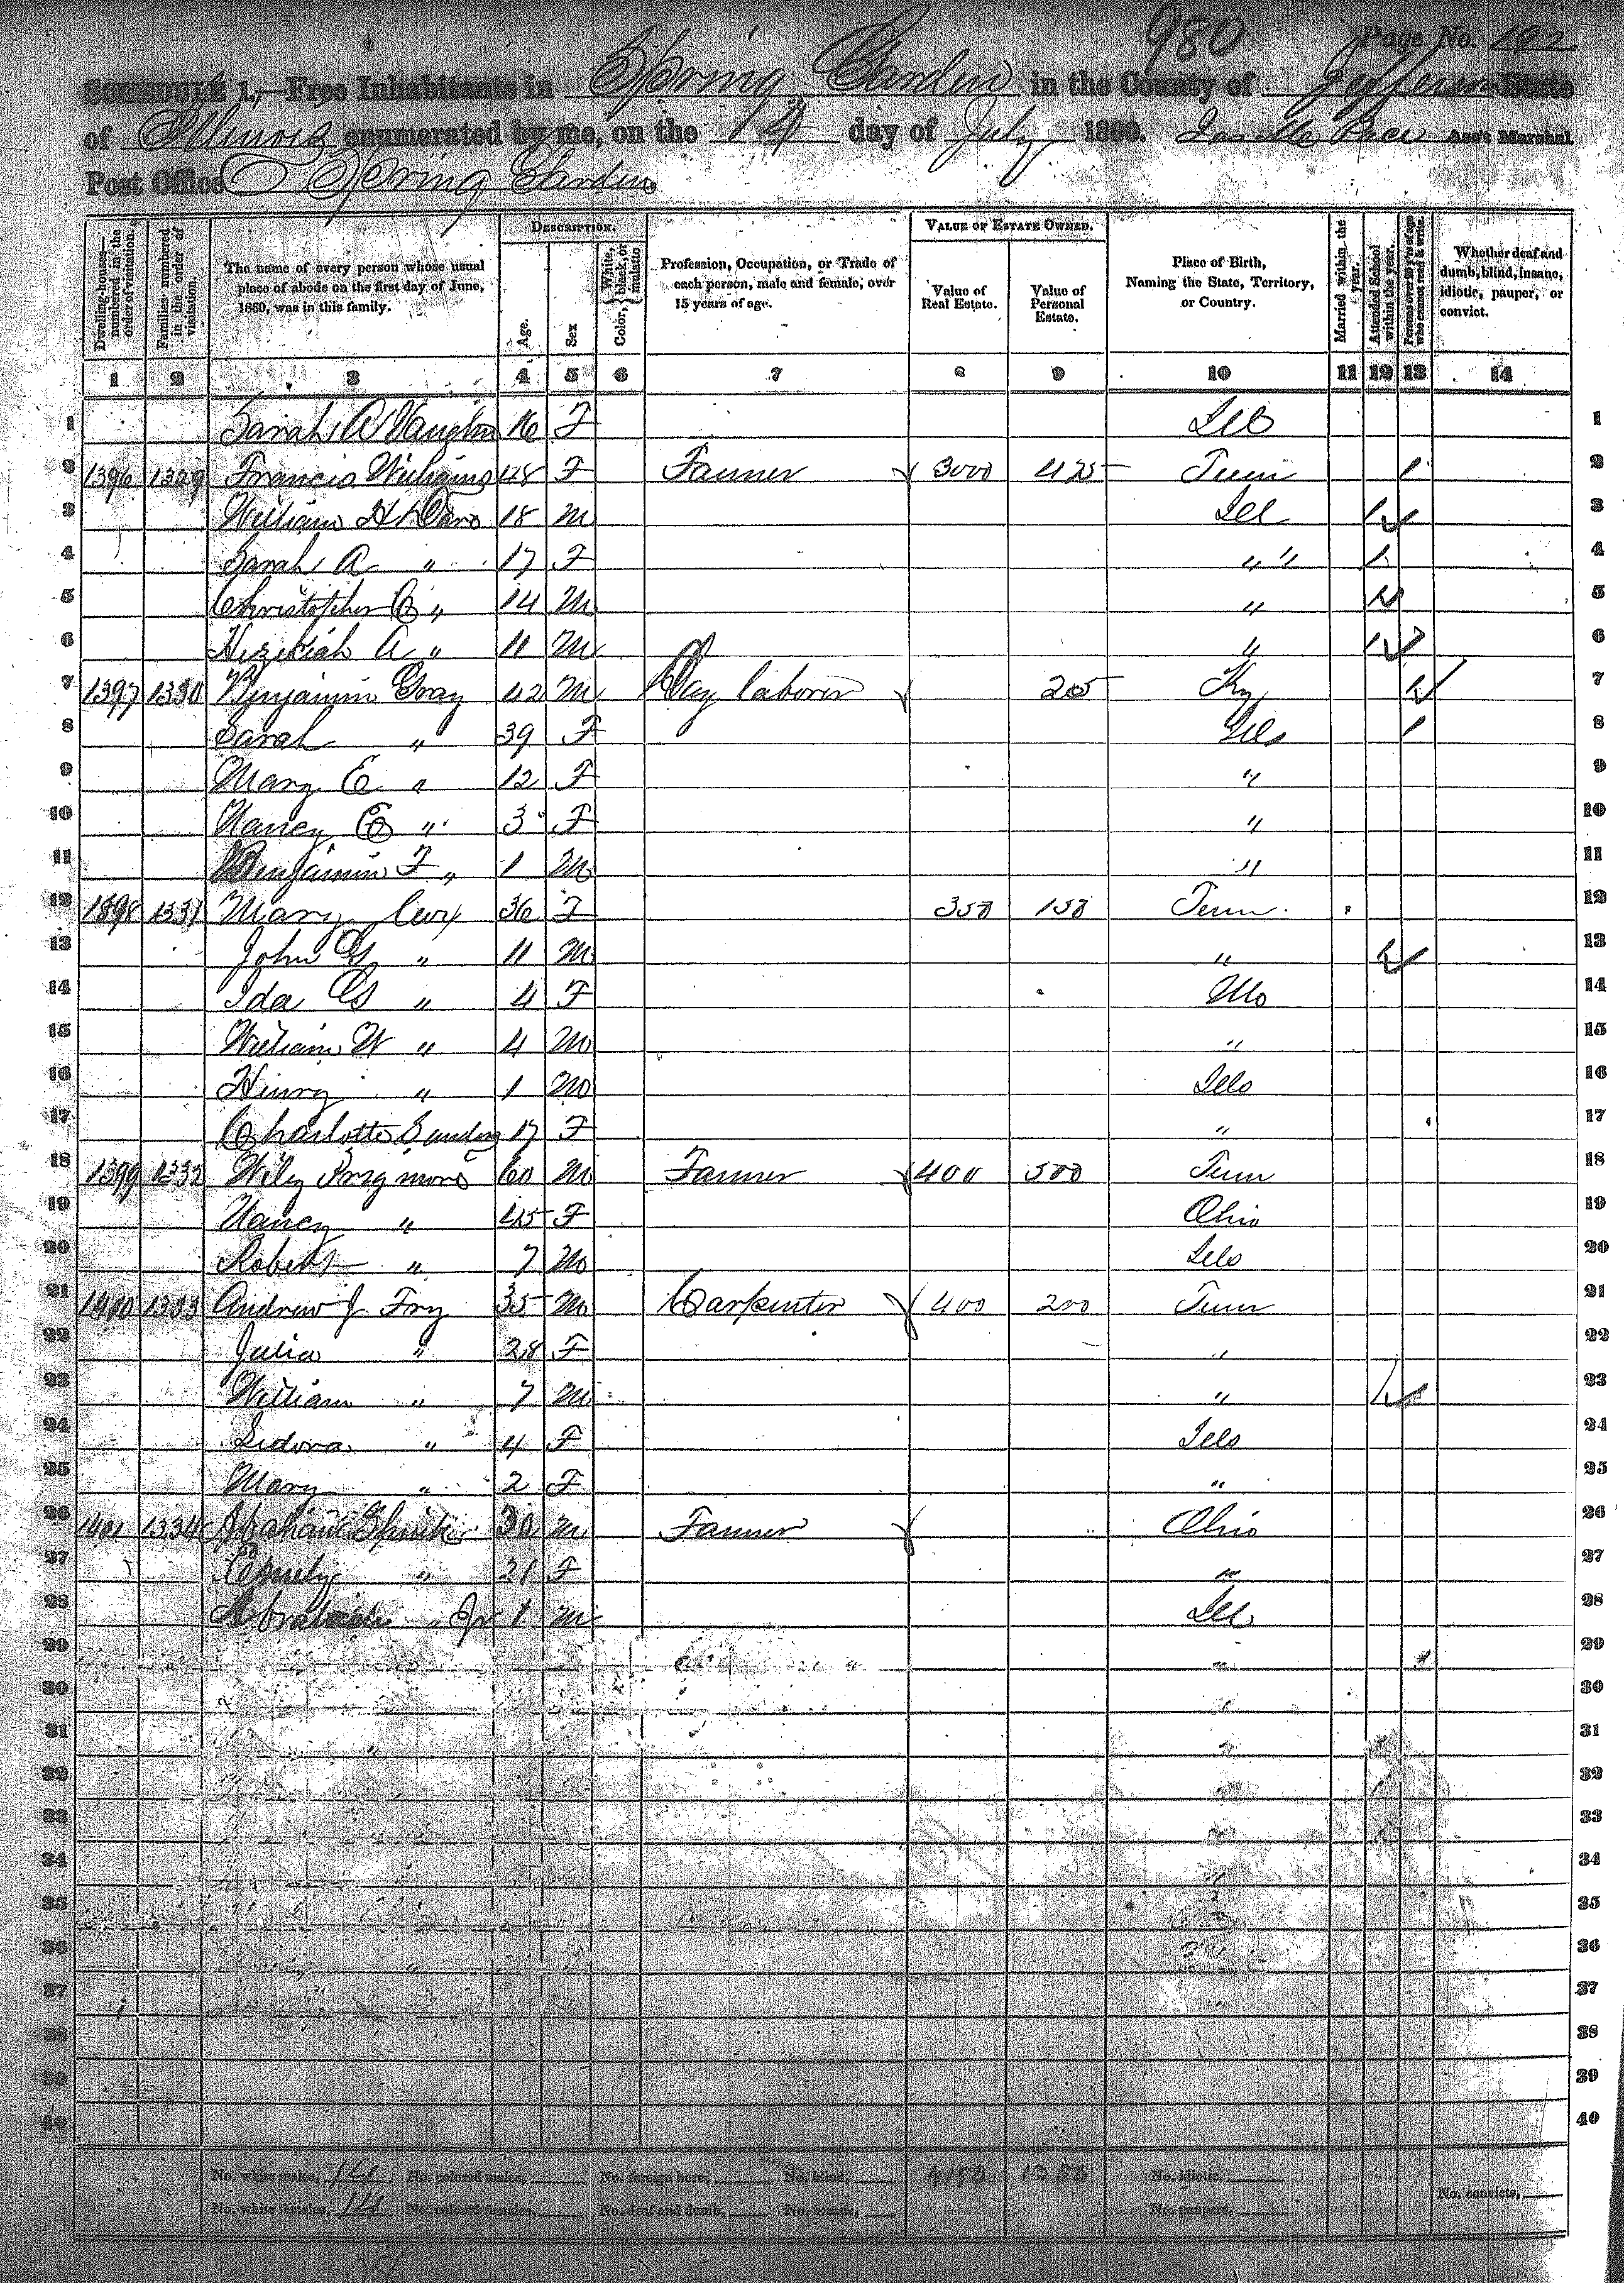 980
Page No. 192
SCHEDULE 1.—Free Inhabitants in Spring Garden in the County of Jefferson State
of Illinois enumerated by me, on the day of July 1860. Pace Ass't Marshal.
Post Office Spring Garden
Dwelling-houses—numbered in the order of visitation.
Families numbered in the order of visitation.
The name of every person whose usual place of abode on the first day of June, 1860, was in this family.
DESCRIPTION.
Age.
Sex
Color, White, black, or mulatto
Profession, Occupation, or Trade of each person, male and female, over 15 years of age.
VALUE OF ESTATE OWNED.
Value of Real Estate.
Value of Personal Estate.
Place of Birth, Naming the State, Territory, or Country.
Married within the year.
Attended School within the year.
Persons over 20 y'rs of age who cannot read & write.
Whether deaf and dumb, blind, insane, idiotic, pauper, or convict.
1 2 3 4 5 6 7 8 9 10 11 12 13 14
1 Sarah A Vaughn 16 F Ill 1
2 1396 1329 Francis Williams 48 F Farmer 3000 425 Tenn 1 2
3 William H 18 M Ill 1 3
4 Sarah A " 17 F " " 1 4
5 Christopher C " 14 M " 1 5
6 Hezekiah A " 11 M " 1 6
7 1397 1330 Benjamin Gray 42 M Day laborer 205 Ky 1 7
8 Sarah " 39 F Ills 1 8
9 Mary E " 12 F " 9
10 Nancy C " 3 F " 10
11 Benjamin F " 1 M " 11
12 1398 1331 Mary Cox 36 F 350 150 Tenn 12
13 John G " 11 M " 1 13
14 Ida G " 4 F Mo 14
15 William W " 4 M " 15
16 Henry " 1 M Ills 16
17 Charlotte 17 F " 17
18 1399 1332 Wily 60 M Farmer 400 500 Tenn 18
19 Nancy " 45 F Ohio 19
20 Robert " 7 M Ills 20
21 1400 1333 Andrew J Fry 35 M Carpenter 400 200 Tenn 21
22 Julia " 28 F " 22
23 William " 7 M " 1 23
24 Ledora " 4 F Ills 24
25 Mary " 2 F " 25
26 1401 1334 30 M Farmer Ohio 26
27 Emily " 21 F " 27
28 Abraham " Jr 1 M Ill 28
29 29
30 30
31 31
32 32
33 33
34 34
35 35
36 36
37 37
38 38
39 39
40 40
No. white males, 14 No. colored males, No. foreign born, No. blind, 4150 1350 No. idiotic,
No. white females, 14 No. colored females, No. deaf and dumb, No. insane, No. paupers, No. convicts,